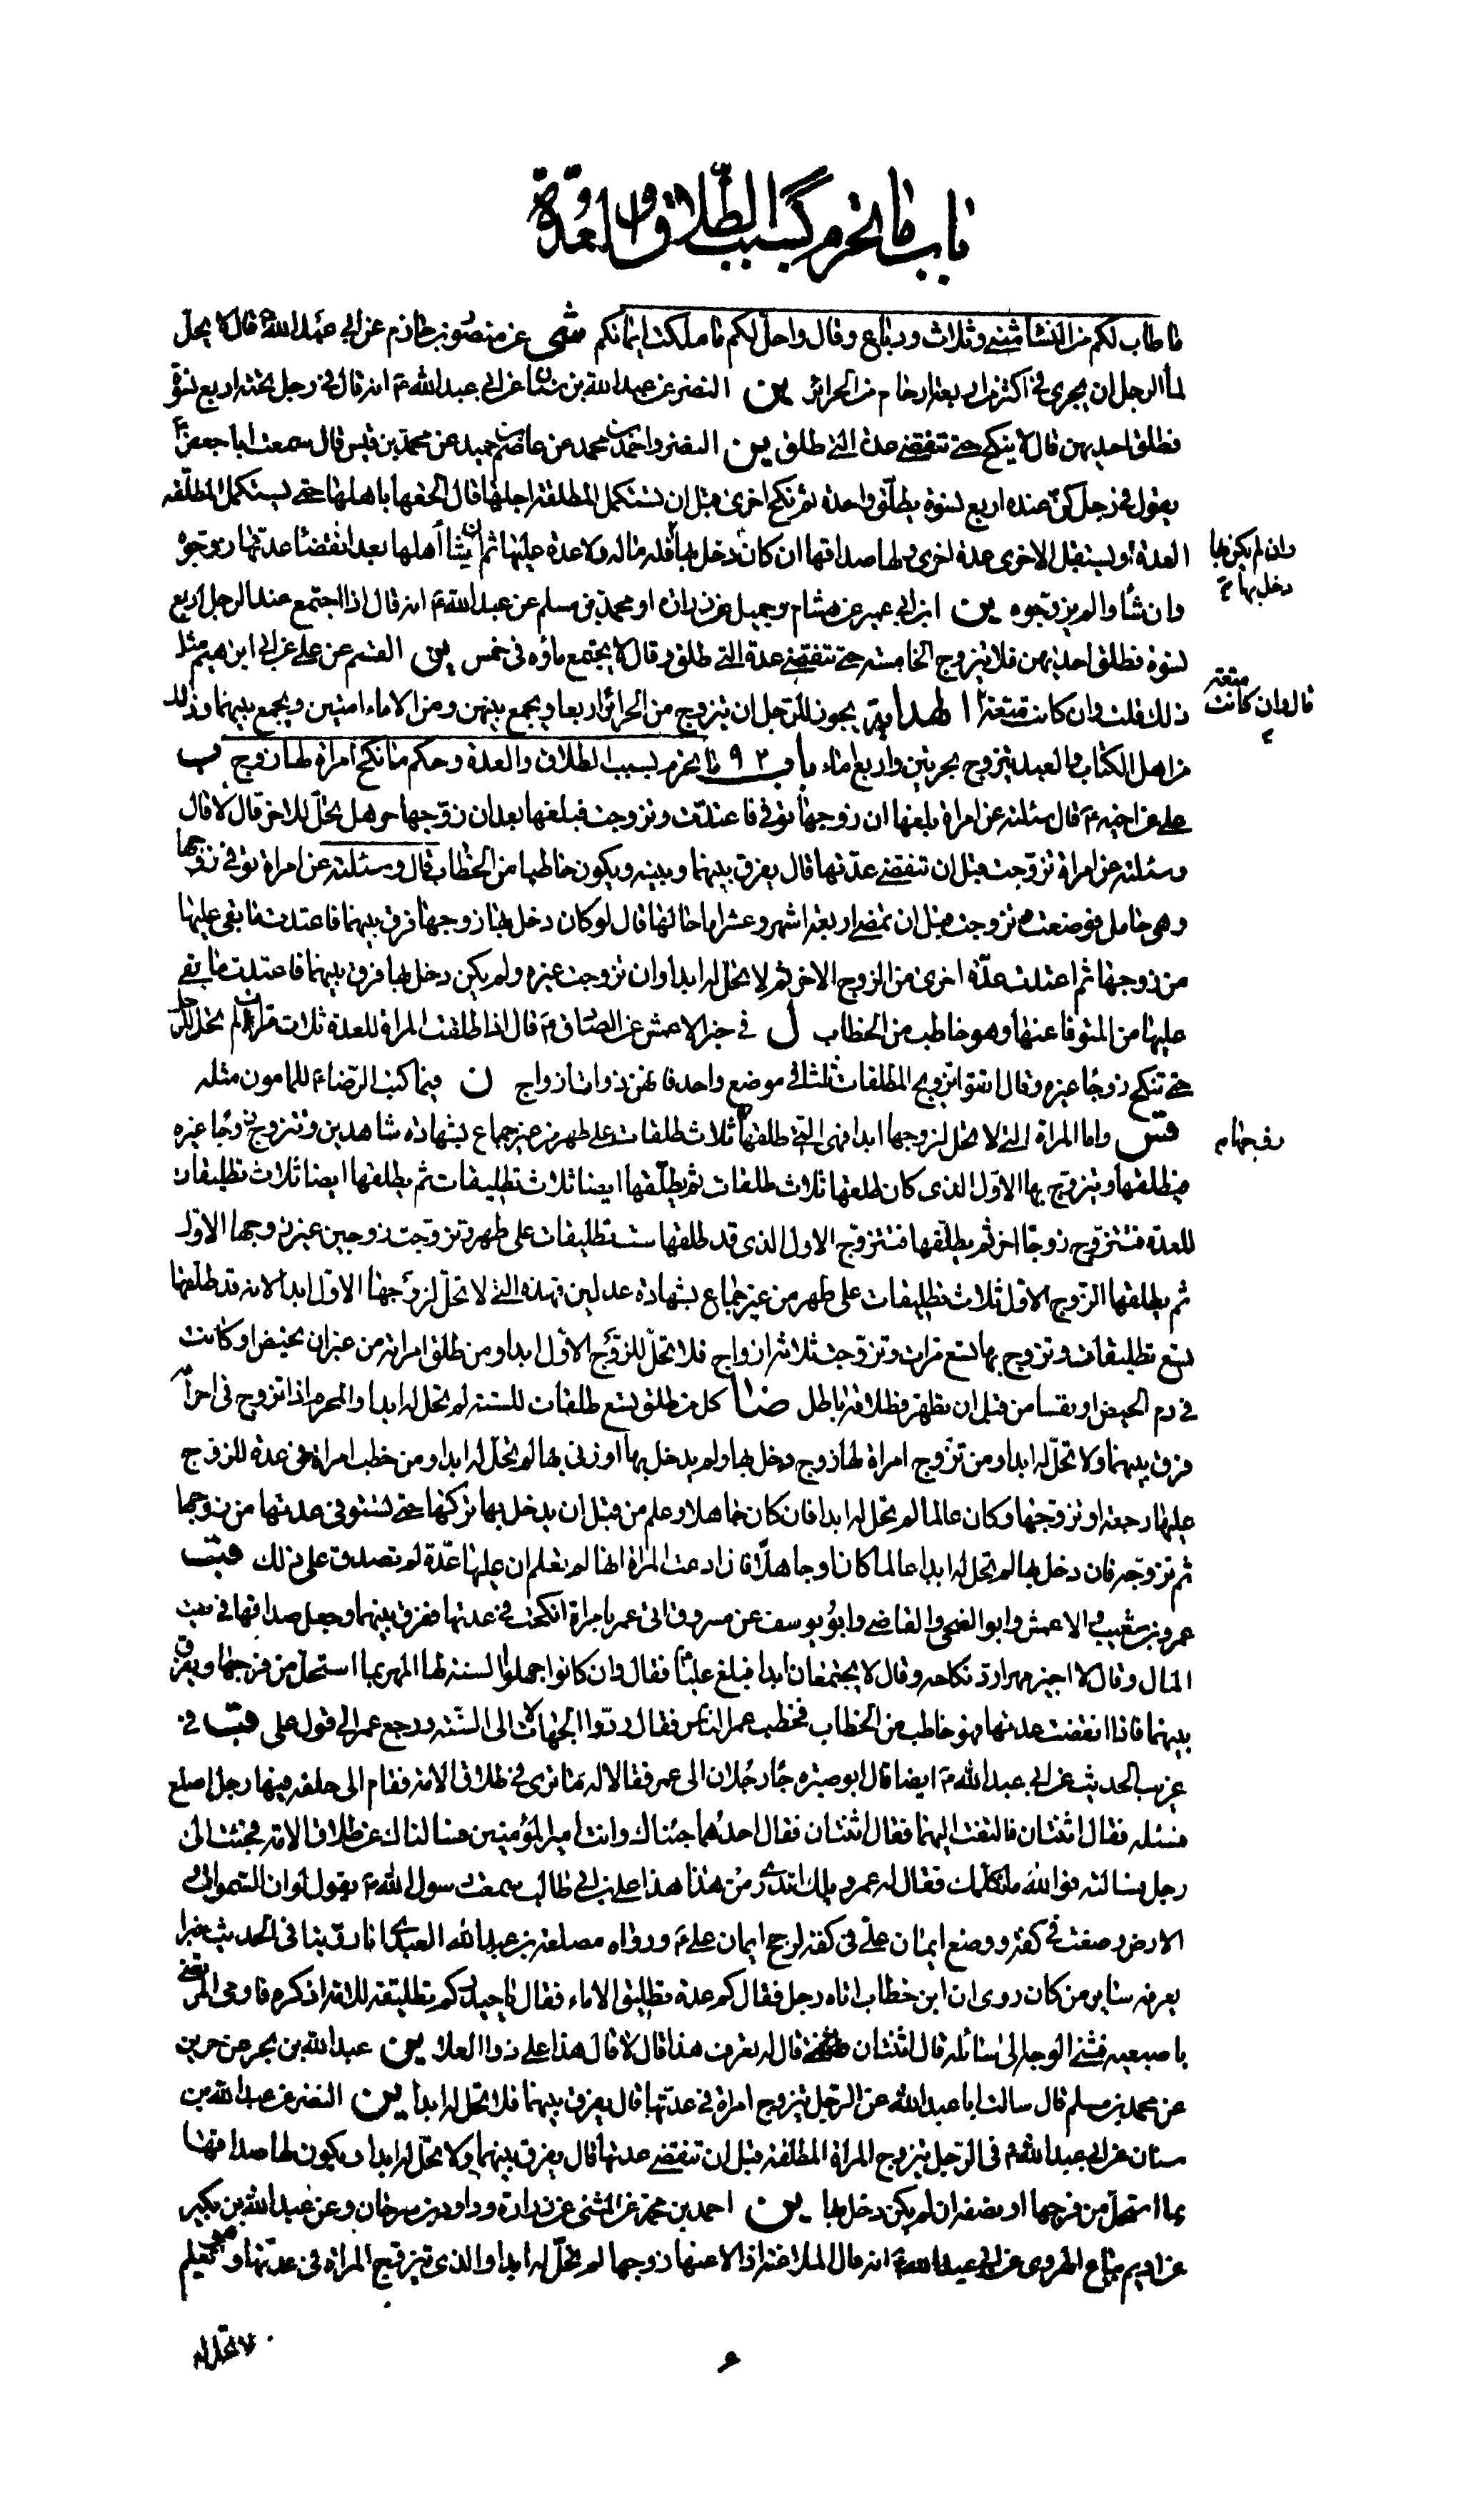 باب ما يحرم بسبب الطلاق والعدة
ما طاب لكم من النساء مثنى وثلاث ورباع وقال واحل لكم ما ملكت ايمانكم شى عن منصور بن حازم عن ابي عبد الله ع قال لا يحل
لماء الرجل ان يجرى في اكثر من اربعة ارحام من الحرائر ين النضر عن عبد الله بن سنان عن ابي عبد الله ع انه قال في رجل تحته اربع نسوة
فطلق احديهن قال لا ينكح حتى تنقضى عدة التى طلق ين النضر واحمد بن محمد عن عاصم بن حميد عن محمد بن قيس قال سمعت ابا جعفر ع
يقول في رجل كن عنده اربع نسوة يطلق واحدة ثم نكح اخرى قبل ان تستكمل المطلقة اجلها قال الحقها باهلها حتى تستكمل المطلقة
العدة او تستقبل الاخرى عدة اخرى ولها صداقها ان كان دخل بها فله ماله ولا عدة عليها ثم ان شاء اهلها بعد انقضاء عدتها زوجوه
وان لم يكن بها
دخل بها
وان شاؤا لم يزوجوه ين ابن ابي عمير عن هشام وجميل عن زرارة او محمد بن مسلم عن عبد الله ع انه قال اذا اجتمع عند الرجل اربع
نسوة فطلق احديهن فلا يتزوج الخامسة حتى تنقضى عدة التى طلق وقال لا يجتمع ماؤه في خمس ين القسم عن علي عن ابي ابرهيم مثل
ذلك قلت وان كانت متعة الهداية يجوز للرجل ان يتزوج من الحرائر اربعا ويجمع بينهن ومن الاماء امتين ويجمع بينهما وذلك
متعة
قال وان كانت
من اهل الكتاب والعبد يتزوج بحرتين واربع اماء باب ٩٢ ما يحرم بسبب الطلاق والعدة وحكم من نكح امرأة لها زوج ب
علي عن اخيه ع قال سئلته عن امراة بلغها ان زوجها توفي فاعتدت وتزوجت فبلغها بعد ان زوجها حي هل تحل للاخر قال لا قال
وسئلته عن امراة تزوجت قبل ان تنقضى عدتها قال يفرق بينهما وبينه ويكون خاطبا من الخطاب قال وسئلته عن امراة توفي زوجها
وهى حامل فوضعت وتزوجت قبل ان تمضى اربعة اشهر وعشرا ما حالها قال لو كان دخل بها زوجها فرق بينهما فاعتدت ما بقى عليها
من زوجها ثم اعتدت عدة اخرى من الزوج الاخر ثم لا تحل له ابدا وان تزوجت غيره ولم يكن دخل بها فرق بينهما فاعتدت ما بقى
عليها من المتوفا عنها وهو خاطب من الخطاب ل في خبر الاعمش عن الصادق ع قال اذا طلقت المراة للعدة ثلاث مرات لم تحل للرجل
حتى تنكح زوجا غيره وقال اتقوا تزويج المطلقات ثلثا في موضع واحد فانهن ذوات ازواج ن فيما كتب الرضا ع للمامون مثله
واما المراة التى لا تحل لزوجها ابدا فهى التى طلقها ثلاث طلقات على طهر من غير جماع بشهادة شاهدين وتتزوج زوجا غيره
فيطلقها ويتزوج بها الاول الذى كان طلقها ثلاث طلقات ثم يطلقها ايضا ثلاث تطليقات ثم يطلقها ايضا ثلاث تطليقات
للعدة فتتزوج زوجا اخر ثم يطلقها فتتزوج الاول الذى قد طلقها ست تطليقات على طهر وتزوجت زوجين غير زوجها الاول
ثم يطلقها الزوج الاول ثلاث تطليقات على طهر من غير جماع بشهادة عدلين فهذه التى لا تحل لزوجها الاول ابدا لانه قد طلقها
تسع تطليقات وتزوج بها تسع مرات وتزوجت ثلاثة ازواج فلا تحل للزوج الاول ابدا ومن طلق امراته من غير ان تحيض او كانت
في دم الحيض او نفسا من قبل ان تطهر فطلاقه باطل ضا كل من طلق تسع طلقات للسنة لم تحل له ابدا والمحرم اذا تزوج في احرامه
فرق بينهما ولا تحل له ابدا ومن تزوج امراة لها زوج دخل بها ولم يدخل بها او زنى بها لم تحل له ابدا ومن خطب امراة في عدة للزوج
عليها رجعة او تزوجها وكان عالما لم تحل له ابدا فان كان جاهلا وعلم من قبل ان يدخل بها تركها حتى تستوفى عدتها من زوجها
ثم تزوجه فان دخل بها لم تحل له ابدا عالما كان او جاهلا فان ادعت المراة انها لم تعلم ان عليها عدة لم تصدق على ذلك قب
عمرو بن شعيب والاعمش وابو الضحى والقاضى وابو يوسف عن مسروق اتى عمر بامراة انكحت في عدتها ففرق بينهما وجعل صداقها في بيت
المال وقال لا اجيز مهرا رد نكاحه وقال لا يجتمعان ابدا فبلغ عليا فقال وان كانوا جهلوا السنة لها المهر بما استحل من فرجها ويفرق
بينهما فاذا انقضت عدتها فهو خاطب من الخطاب فخطب عمر الناس فقال ردوا الجهالات الى السنة ورجع عمر الى قول على قب في
غريب الحديث عن ابي عبد الله ع ايضا قال ابو صبرة جاء رجلان الى عمر فقالا له ما ترى في طلاق الامة فقام الى حلقة فيها رجل اصلع
فسئله فقال اثنتان فالتفت اليهما فقال اثنتان فقال احدهما جئناك وانت امير المؤمنين فسالناك عن طلاق الامة فجئت الى
رجل فسالته فوالله ما كلمك فقال له عمر ويلك اتدرى من هذا هذا على بن ابي طالب سمعت رسول الله ع يقول لو ان السموات
والارض وضعت في كفة ووضع ايمان على في كفة لرجح ايمان على ع ورواه مصقلة بن عبد الله العبدى انا روينا في الحديث خبرا
يعرفه ساير من كان روى ان ابن خطاب اتاه رجل فقال كم عدة تطليق الاماء فقال يا حيدر كم تطليقة للامة اذكره فاومى المرتضى
باصبعيه فثنى الوجه الى سائله قال اثنتان قال له تعرف هذا قال لا قال هذا على ذو العلا ين عبد الله بن بحر عن حريز
عن محمد بن مسلم قال سالت ابا عبد الله عن الرجل يتزوج امراة في عدتها قال يفرق بينهما فلا تحل له ابدا ين النضر عن عبد الله بن
سنان عن ابي عبد الله ع في الرجل يتزوج المراة المطلقة قبل ان تنقضى عدتها قال يفرق بينهما ولا تحل له ابدا ويكون لها صداقها
بما استحل من فرجها او نصفه ان لم يكن دخل بها ين احمد بن محمد عن المثنى عن زرارة وداود بن سرحان وعن عبد الله بن بكير
عن اديم بياع الهروى عن ابي عبد الله ع انه قال الملاعنة اذا لاعنها زوجها لم تحل له ابدا والذى يتزوج المراة في عدتها وهو يعلم
لا تحل له